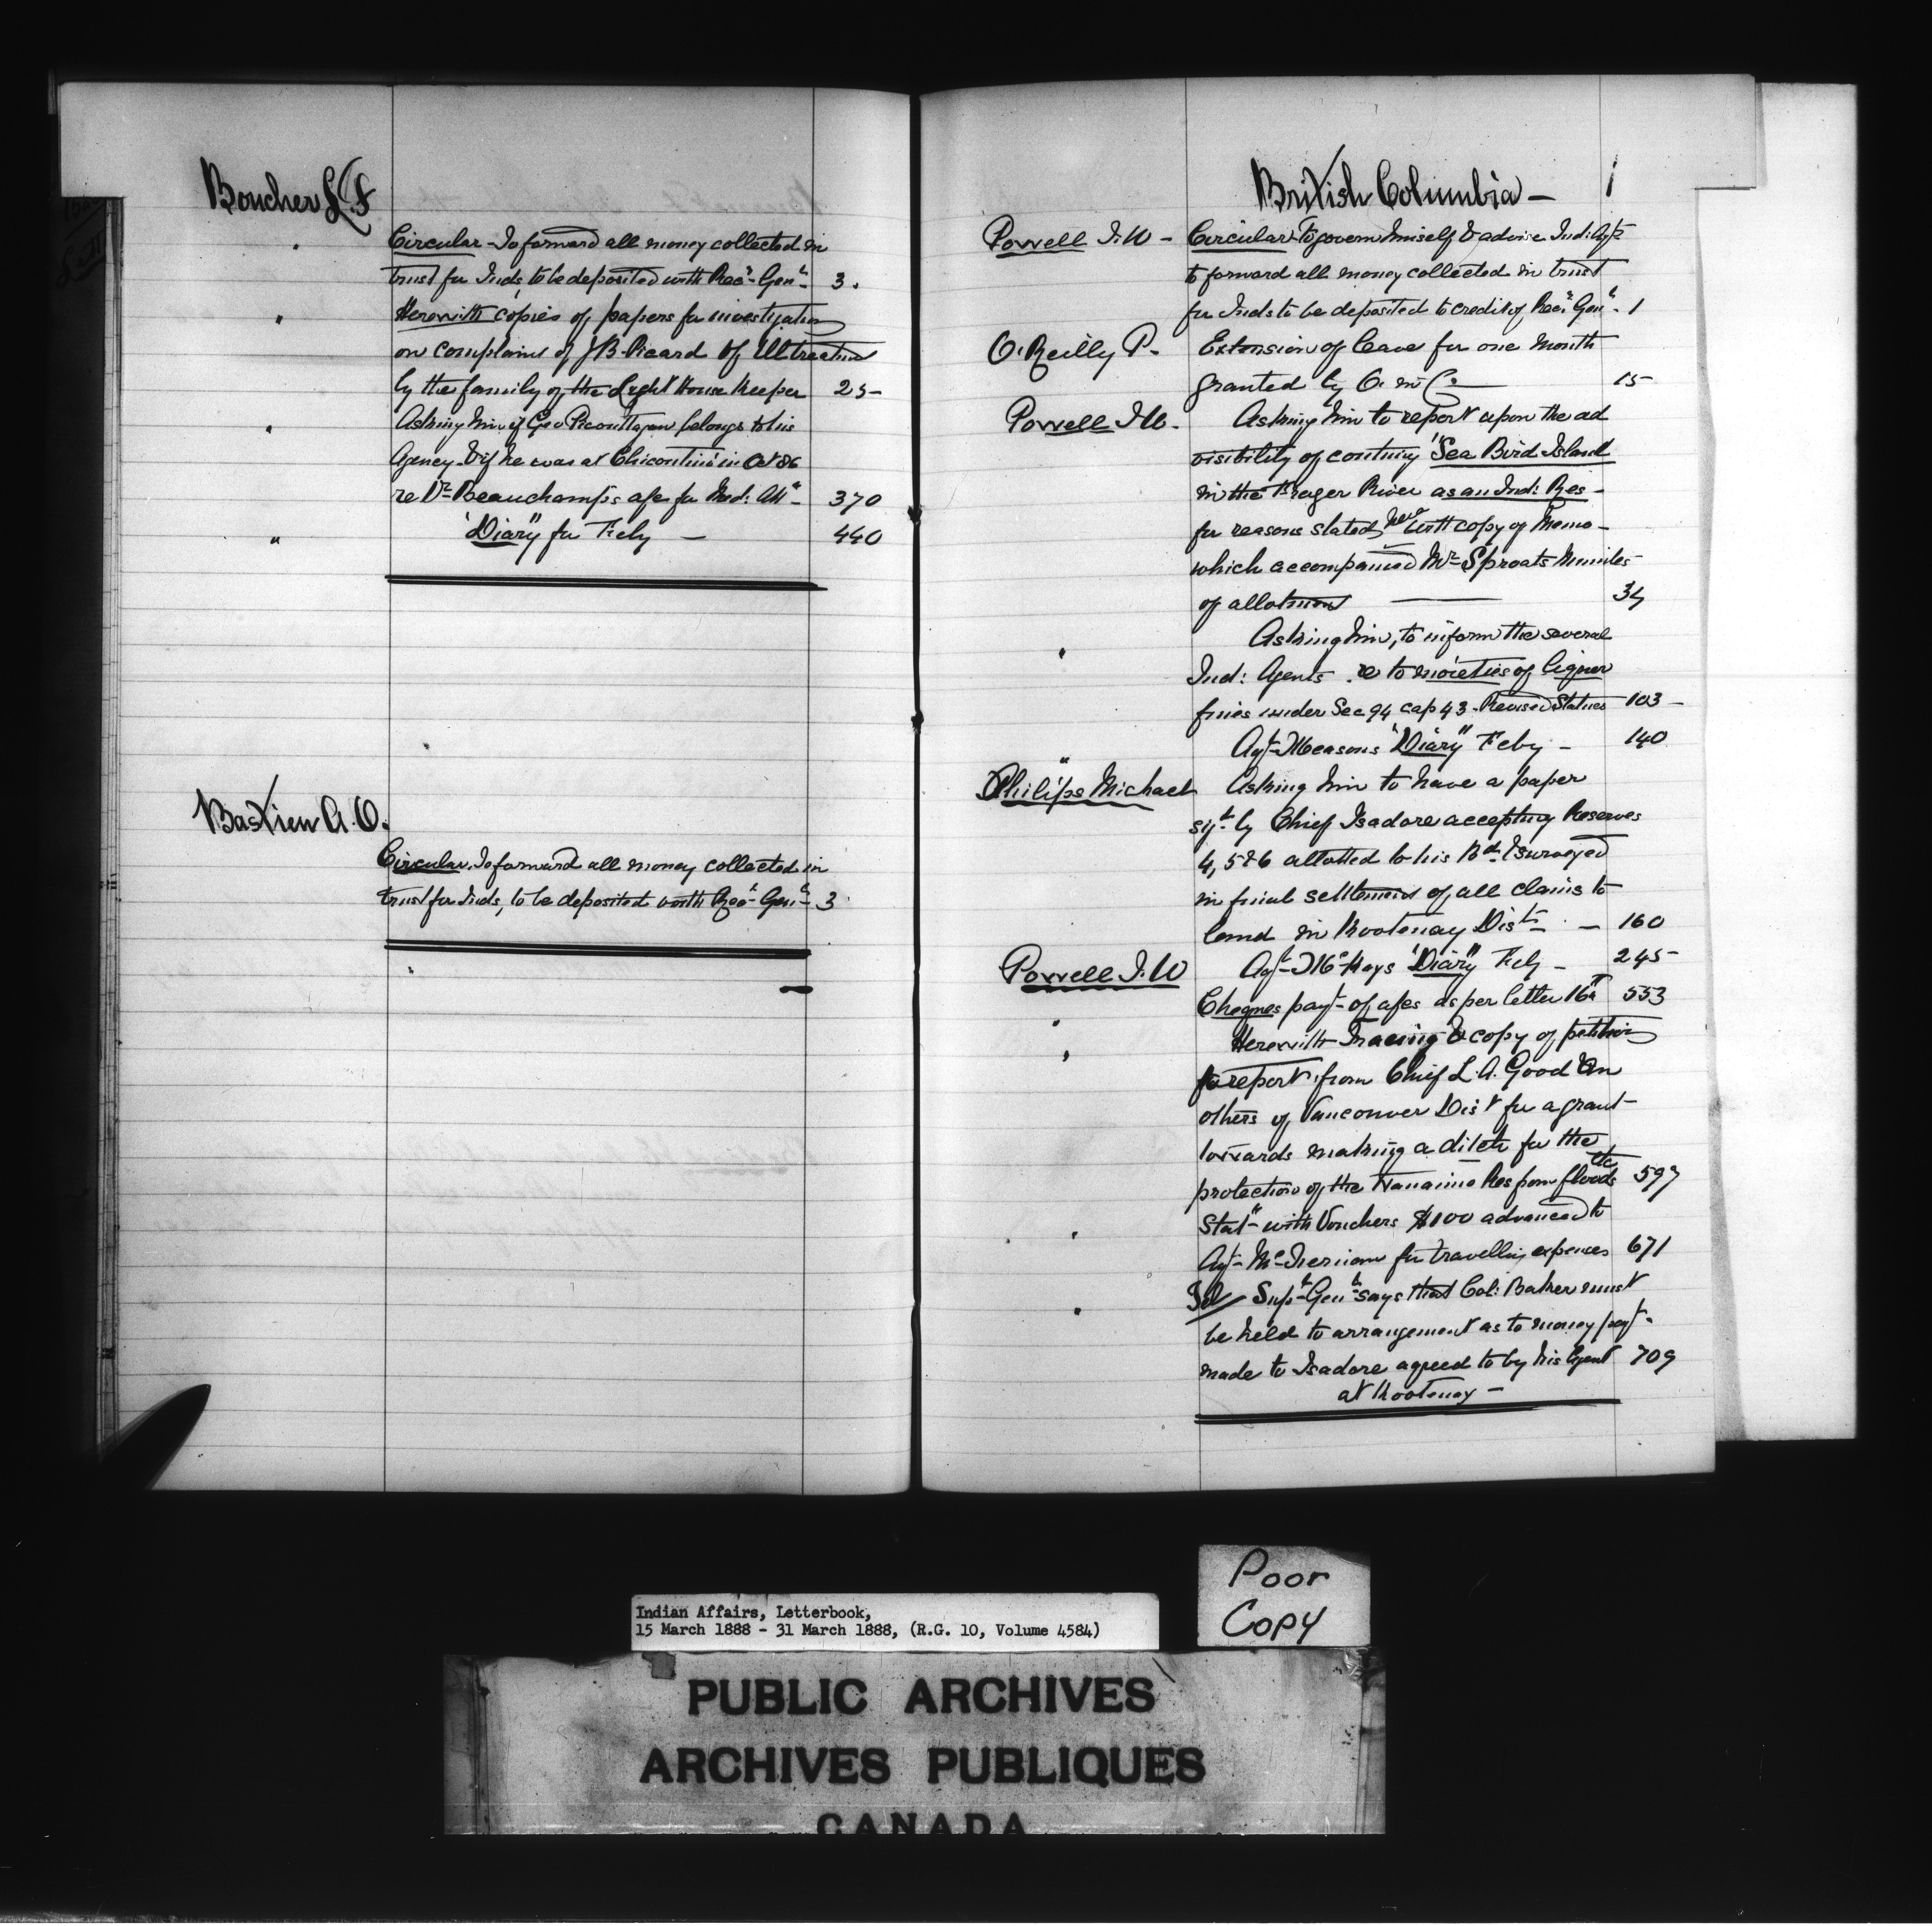 Boucher L. F.
Circular - To forward all money collected in
trust for Inds, to be deposited with Rec.r Gen.l 3.
" Herewith copies of papers for investigation
on complaint of J B. Picard of Illtreatment
by the family of the Light House Keeper 25-
" Asking him if Geo belongs to his
Agency & if he was at Chicoutimi in Oct 86
re Dr Beauchamp's a/c for Med: Att.e 370
" "Diary" for Feby - 440
Bastien A. O.
Circular. To forward all money collected in
trust for Inds, to be deposited with Rec.r Gen.l 3
British Columbia - 1
Powell I. W - Circular - To govern himself & advise Ind: Agts
to forward all money collected in trust
for Inds to be deposited to credit of Rec.r Gen.l 1
O'Reilly P. Extension of leave for one month
granted by O. in C. 15
Powell I W. Asking him to report upon the ad
visibility of "Sea Bird Island
in the Frazer River as an Ind: Res -
for reasons stated herewith copy of Memo -
which accompanied Mr Sproats Minutes
of allotment 34
" Asking him, to inform the several
Ind: Agents re to moieties of liquor
fines under Sec 94 cap 43. Revised Statues 103 -
" Agt Measons "Diary" Feby - 140
Philips Michael Asking him to have a paper
sigd by Chief Isadore accepting Reserves
4, 5 & 6 allotted to his Bd & surveyed
in final settlement of all claims to
land in Kootenay Dist - 160
Powell I. W Agt McKays "Diary" Feby - 245
" Cheques payt of a/cs as per letter 16th 553
" Herewith Tracing & copy of petition
for report from Chief L. A. Good &
others of Vancouver Dist for a grant
towards making a ditch for the
protection of the Nanaimo Res from floods etc 597
" Statt with Vouchers $100 advanced to
Agt McTiernan for travelling expenses 671
" Tel/ Supt Genl says that Col: Baker must
be held to arrangement as to money payt
made to Isadore agreed to by his Agent 709
at Kootenay -
Poor
Copy
Indian Affairs, Letterbook,
15 March 1888 - 31 March 1888, (R.G. 10, Volume 4584)
PUBLIC ARCHIVES
ARCHIVES PUBLIQUES
CANADA